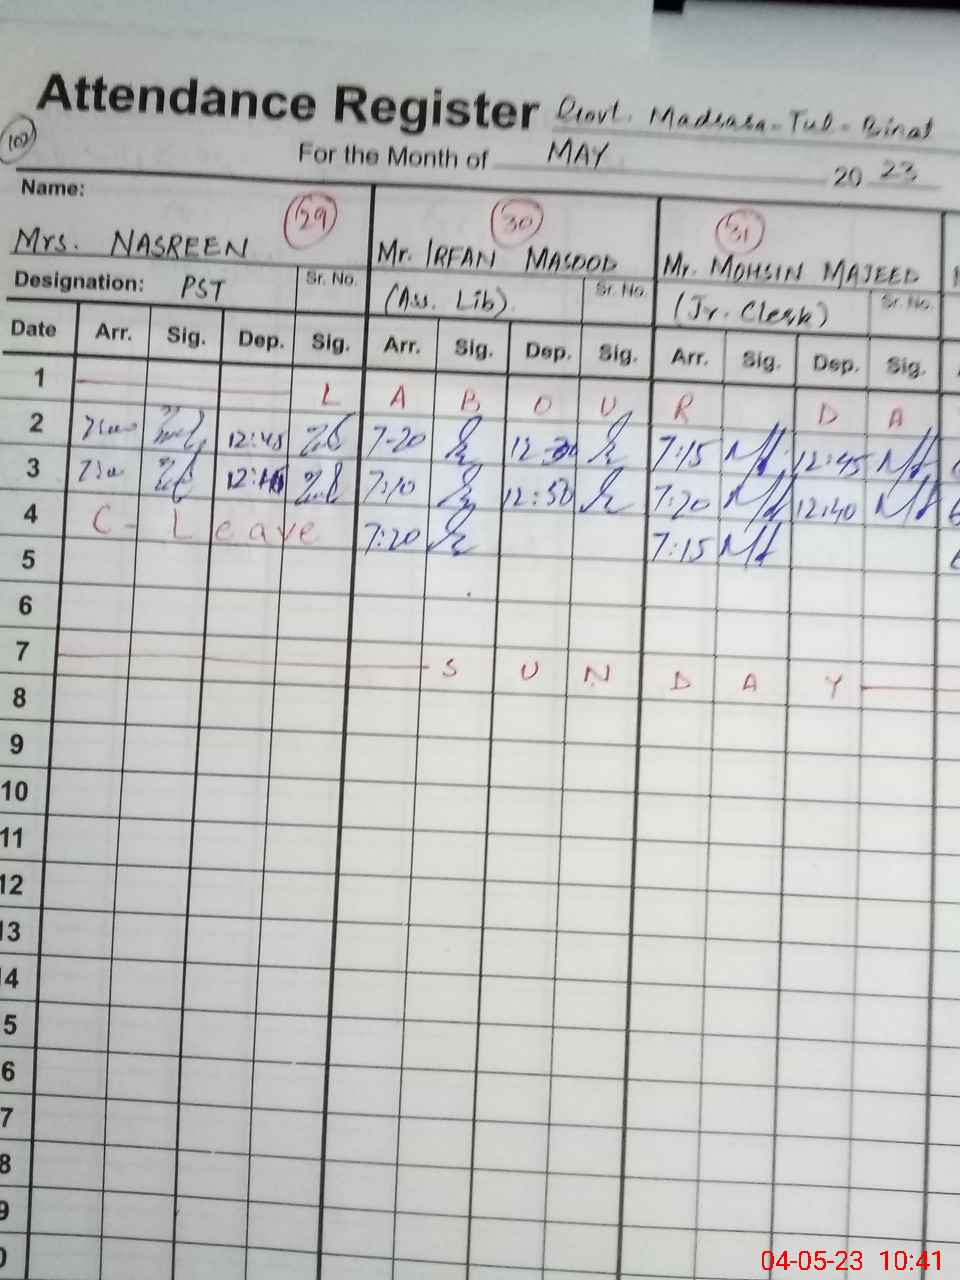 Attendance Register Govt. Madrasa-Tul-Binat
102
For the Month of MAY 2023
Name:
29 30 31
Mrs. NASREEN Mr. IRFAN MASOOD Mr. MOHSIN MAJEED
Designation: PST Sr. No. (Ass. Lib). Sr. No. (Jr. Clerk) Sr. No.
Date Arr. Sig. Dep. Sig. Arr. Sig. Dep. Sig. Arr. Sig. Dep. Sig.
1 L A B O U R D A
2 12:45 7-20 12:30 7:15 12:45
3 7:10 12:50 7:20 12:40
4 C - Leave 7:20 7:15
5
6
7 S U N D A Y
8
9
10
11
12
13
4
5
6
7
8
9
0
04-05-23 10:41